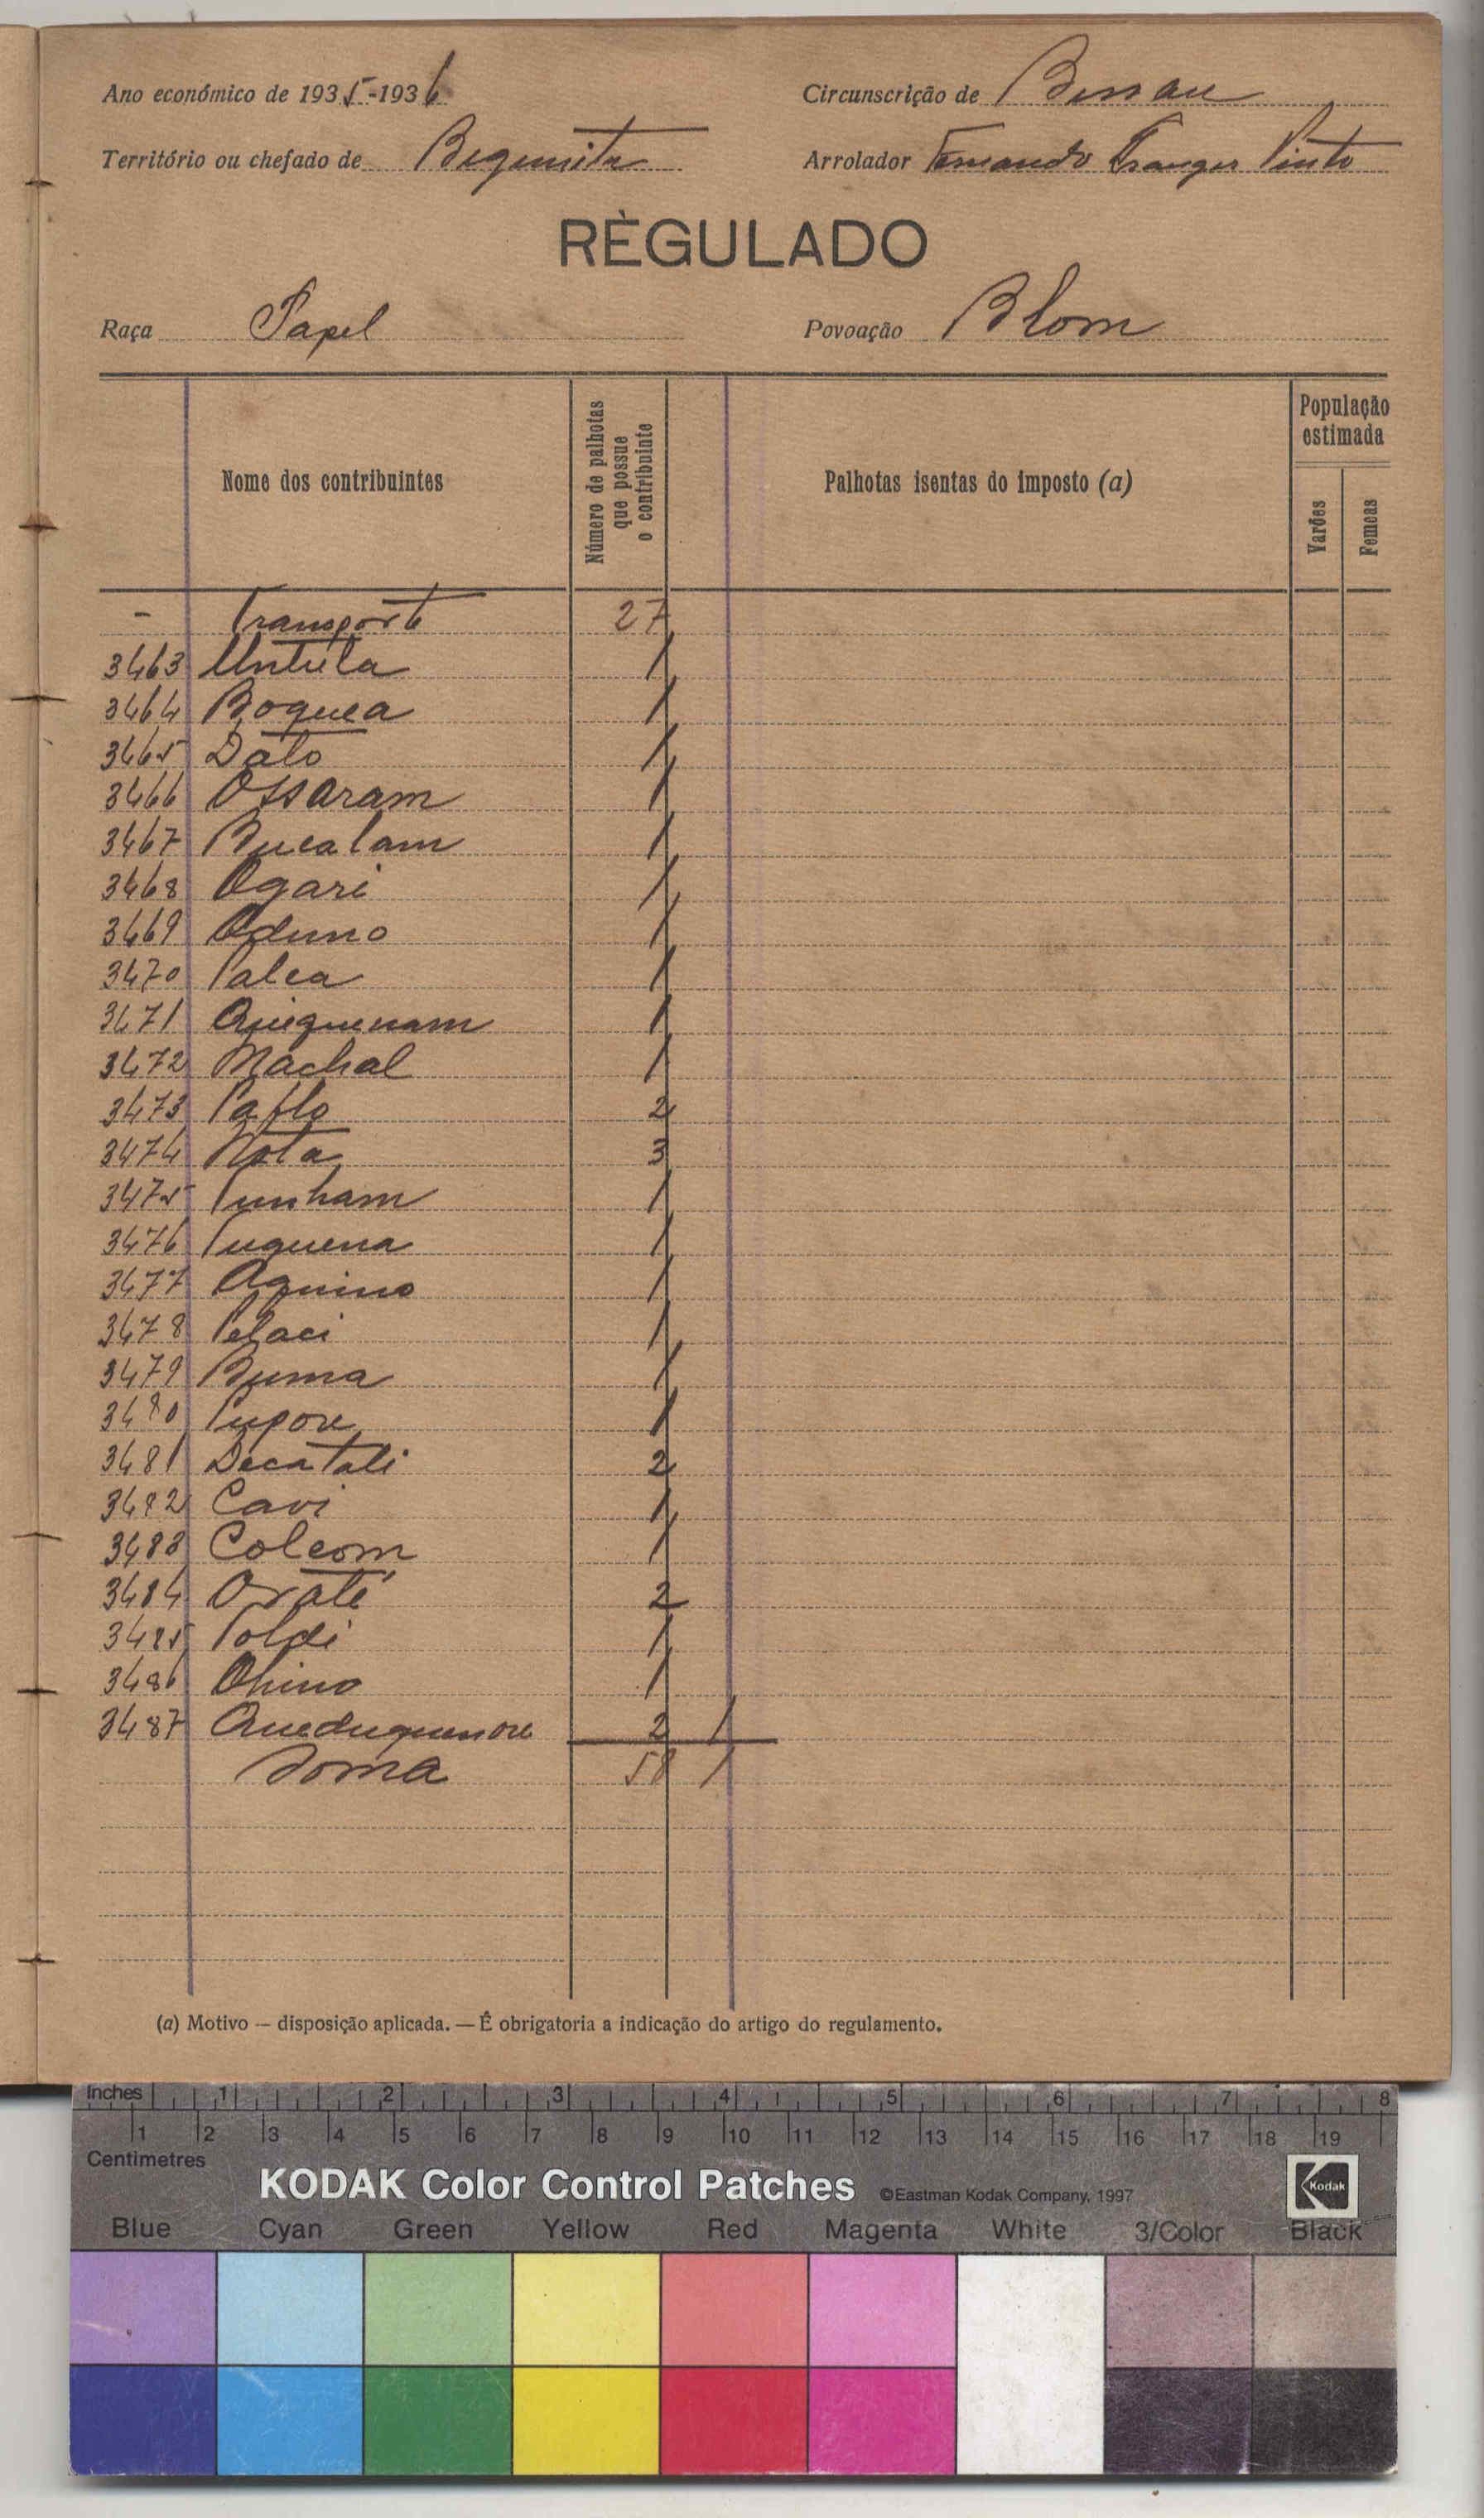 Ano económico de 1935-1936 Circunscrição de Bissau
Território ou chefado de Bigimita Arrolador Fernando Pinto
RÈGULADO
Raça Papel Povoação Blom
Nome dos contribuintes Número de palhotas que possue o contribuinte Palhotas isentas do imposto (a) População estimada Varões Femeas
- Transporte 27
3463 Untula 1
3464 Boquea 1
3465 Dato 1
3466 Ossaram 1
3467 Bucalam 1
3468 Ogari 1
3469 Oduno 1
3470 Palca 1
3471 Quequenam 1
3472 Machal 1
3473 Paflo 2
3474 Nota 3
3475 Punham 1
3476 Puquena 1
3477 Aquino 1
3478 Pelaci 1
3479 Buma 1
3480 Pupore 1
3481 Decatali 2
3482 Cavi 1
3483 Colcom 1
3484 Oraté 2
3485 Poldi 1
3486 Ohino 1
3487 Queduquenore 2 1
Soma 58 1
(a) Motivo — disposição aplicada. — É obrigatoria a indicação do artigo do regulamento.
Inches 1 2 3 4 5 6 7 8
1 2 3 4 5 6 7 8 9 10 11 12 13 14 15 16 17 18 19
Centimetres
KODAK Color Control Patches ©Eastman Kodak Company, 1997 Kodak
Blue Cyan Green Yellow Red Magenta White 3/Color Black